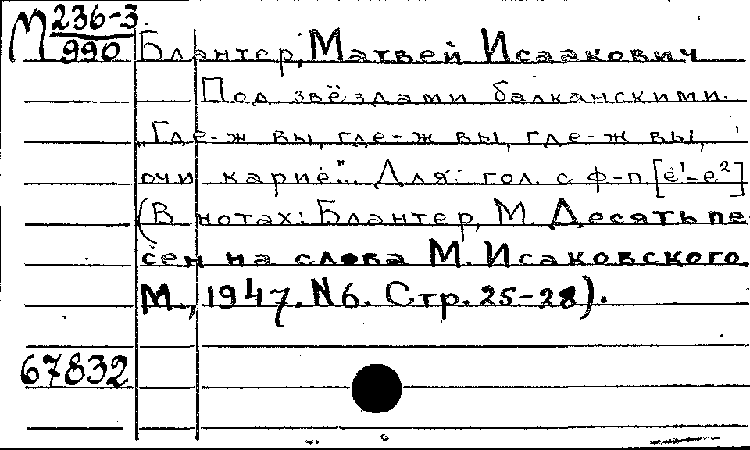 М 236-3
990
Блантер, Матвей Исаакович
Под звёздами балканскими.
„Где-ж вы, где-ж вы, где-ж вы,
очи карие". Для: гол. с ф-п. [e¹-e²]
(В нотах: Блантер, М. Десять пе-
сен на слова М. Исаковского.
М., 1947. N6. Стр. 25-28).
67832